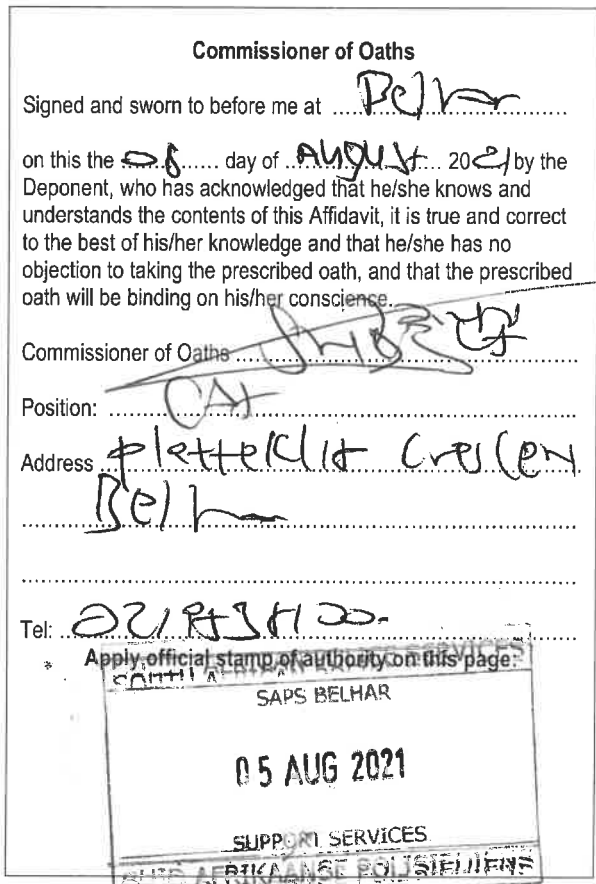 Commissioner of Oaths
Signed and sworn to before me at ..... Belhar .....
on this the ..... day of .. August ... 2021 by the
Deponent, who has acknowledged that he/she knows and
understands the contents of this Affidavit, it is true and correct
to the best of his/her knowledge and that he/she has no
objection to taking the prescribed oath, and that the prescribed
oath will be binding on his/her conscience.
Commissioner of Oaths
Position:
Address
Belhar
Tel: 021
Apply official stamp of authority on this page:
SAPS BELHAR
05 AUG 2021
SUPPORT SERVICES